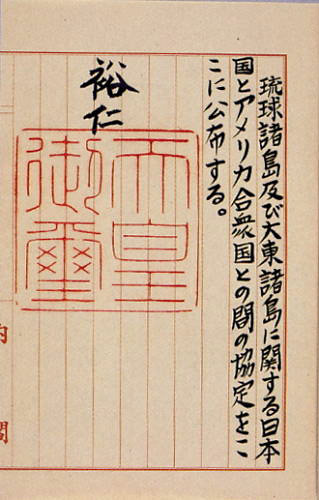 琉球諸島及び大東諸島に関する日本
国とアメリカ合衆国との間の協定をこ
こに公布する。
裕仁
天皇
御璽
内閣